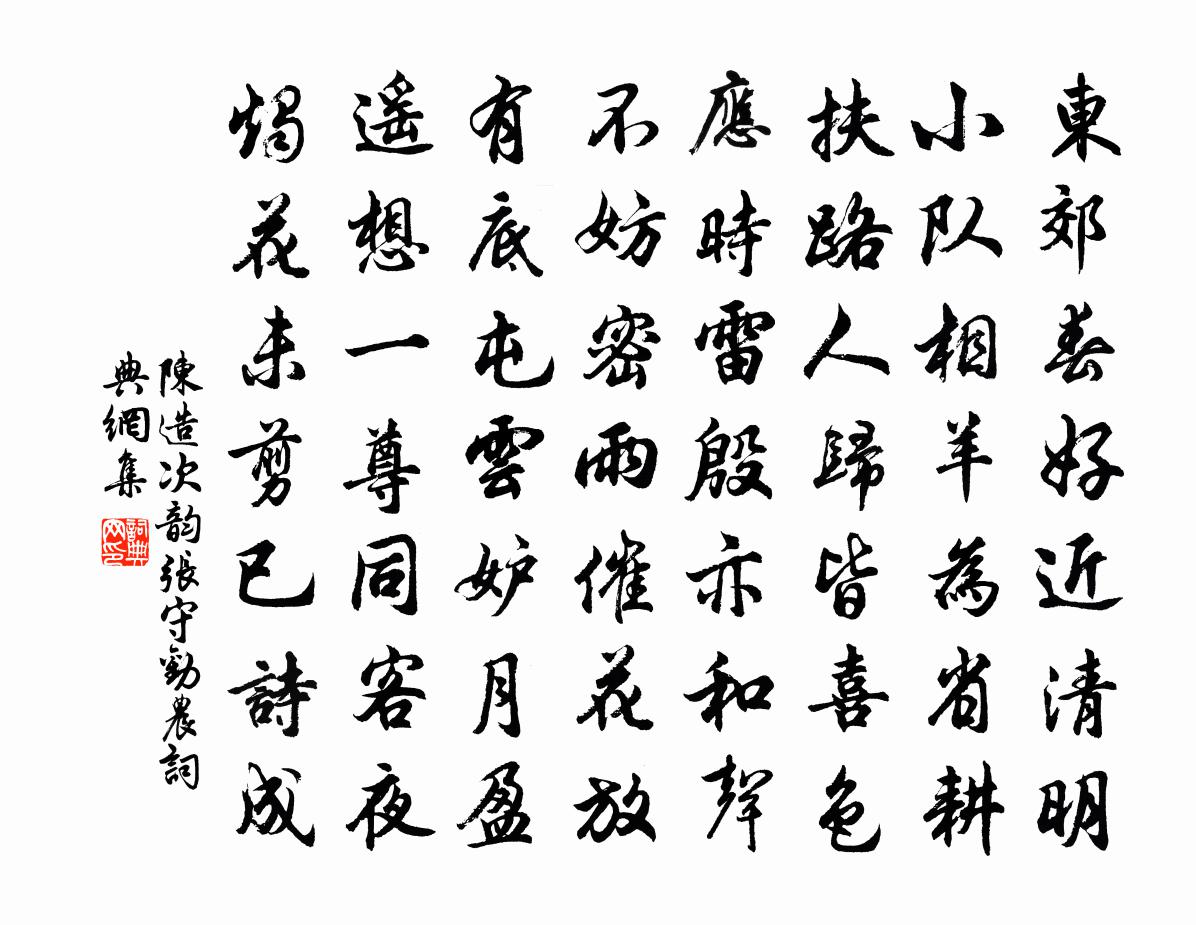 東郊春好近清明
小队相羊為省耕
扶路人歸皆喜色
應時雷殷亦和聲
不妨密雨催花放
有底屯雲妒月盈
遥想一尊同客夜
燭花未剪已詩成
陳造次韵張守勸農詞
典網集
詞典网印